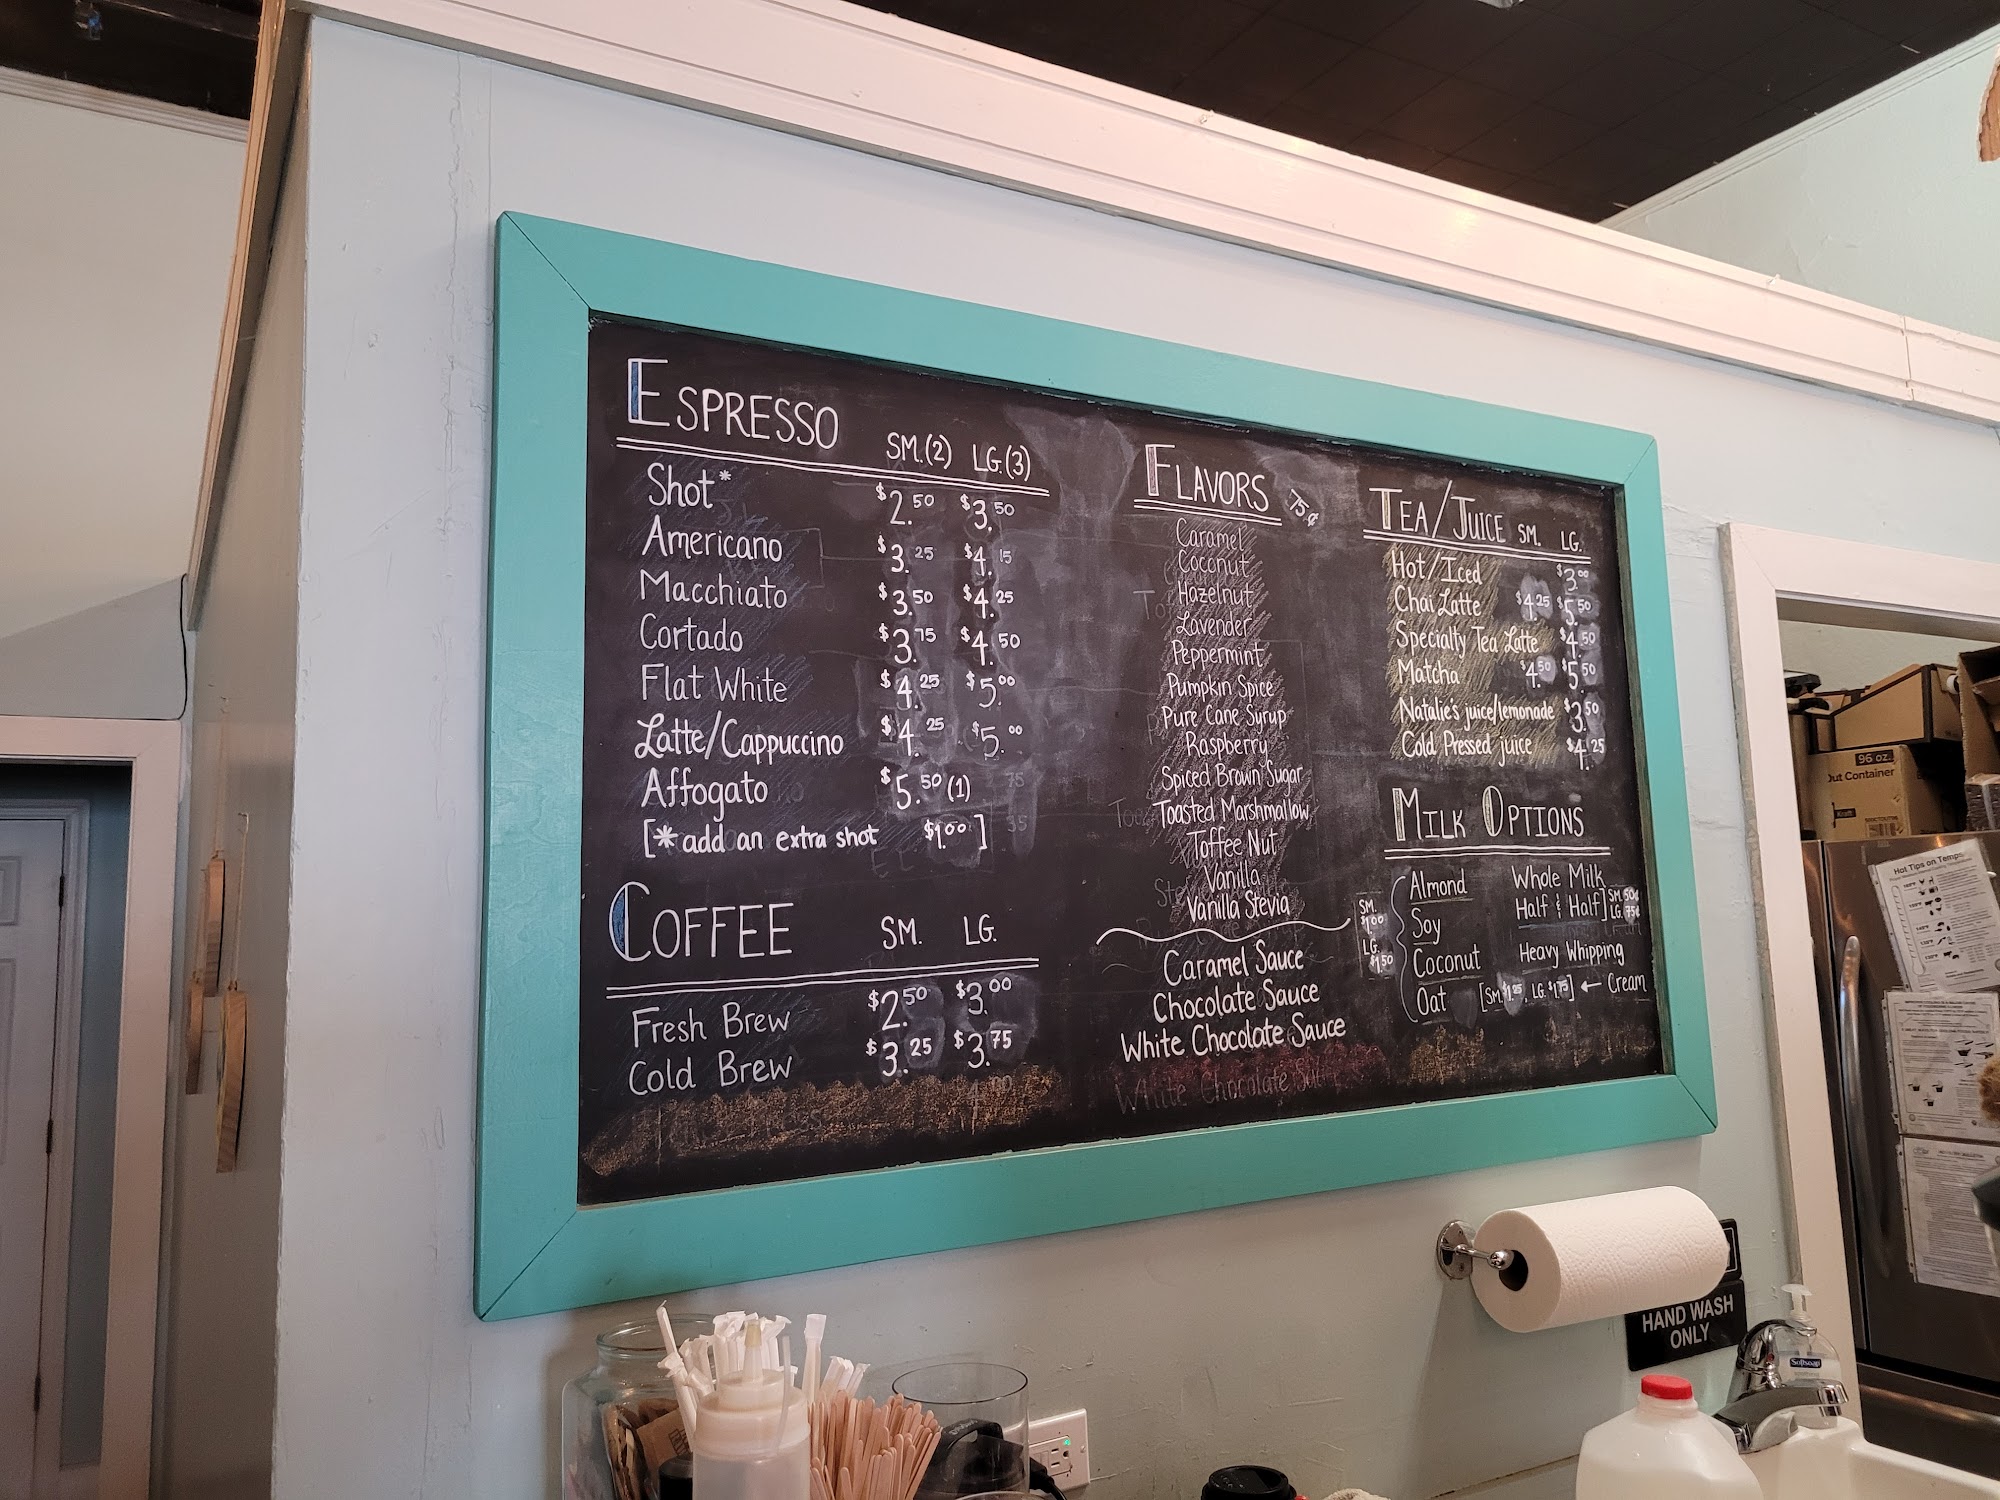 ESPRESSO SM.(2) LG.(3)
Shot* $2.50 $3.50
Americano $3.25 $4.15
Macchiato $3.50 $4.25
Cortado $3.75 $4.50
Flat White $4.25 $5.00
Latte/Cappuccino $4.25 $5.00
Affogato $5.50 (1)
[*add an extra shot $1.00]
COFFEE SM. LG.
Fresh Brew $2.50 $3.00
Cold Brew $3.25 $3.75
FLAVORS 75¢
Caramel
Coconut
Hazelnut
Lavender
Peppermint
Pumpkin Spice
Pure Cane Syrup
Raspberry
Spiced Brown Sugar
Toasted Marshmallow
Toffee Nut
Vanilla
Vanilla Stevia
Caramel Sauce
Chocolate Sauce
White Chocolate Sauce
White Chocolate
TEA/JUICE SM. LG.
Hot/Iced $3.00
Chai Latte $4.25 $5.50
Specialty Tea Latte $4.50
Matcha $4.50 $5.50
Natalie's juice/lemonade $3.50
Cold Pressed juice $4.25
MILK OPTIONS
SM. $1.00
LG. $1.50
Almond
Soy
Coconut
Oat
Whole Milk
Half & Half] SM. 50¢ LG. 75¢
Heavy Whipping
[SM. $1.25, LG. $1.75] ← Cream
96 oz.
Out Container
Kraft
Hot Tips on Temps
HAND WASH
ONLY
Softsoap